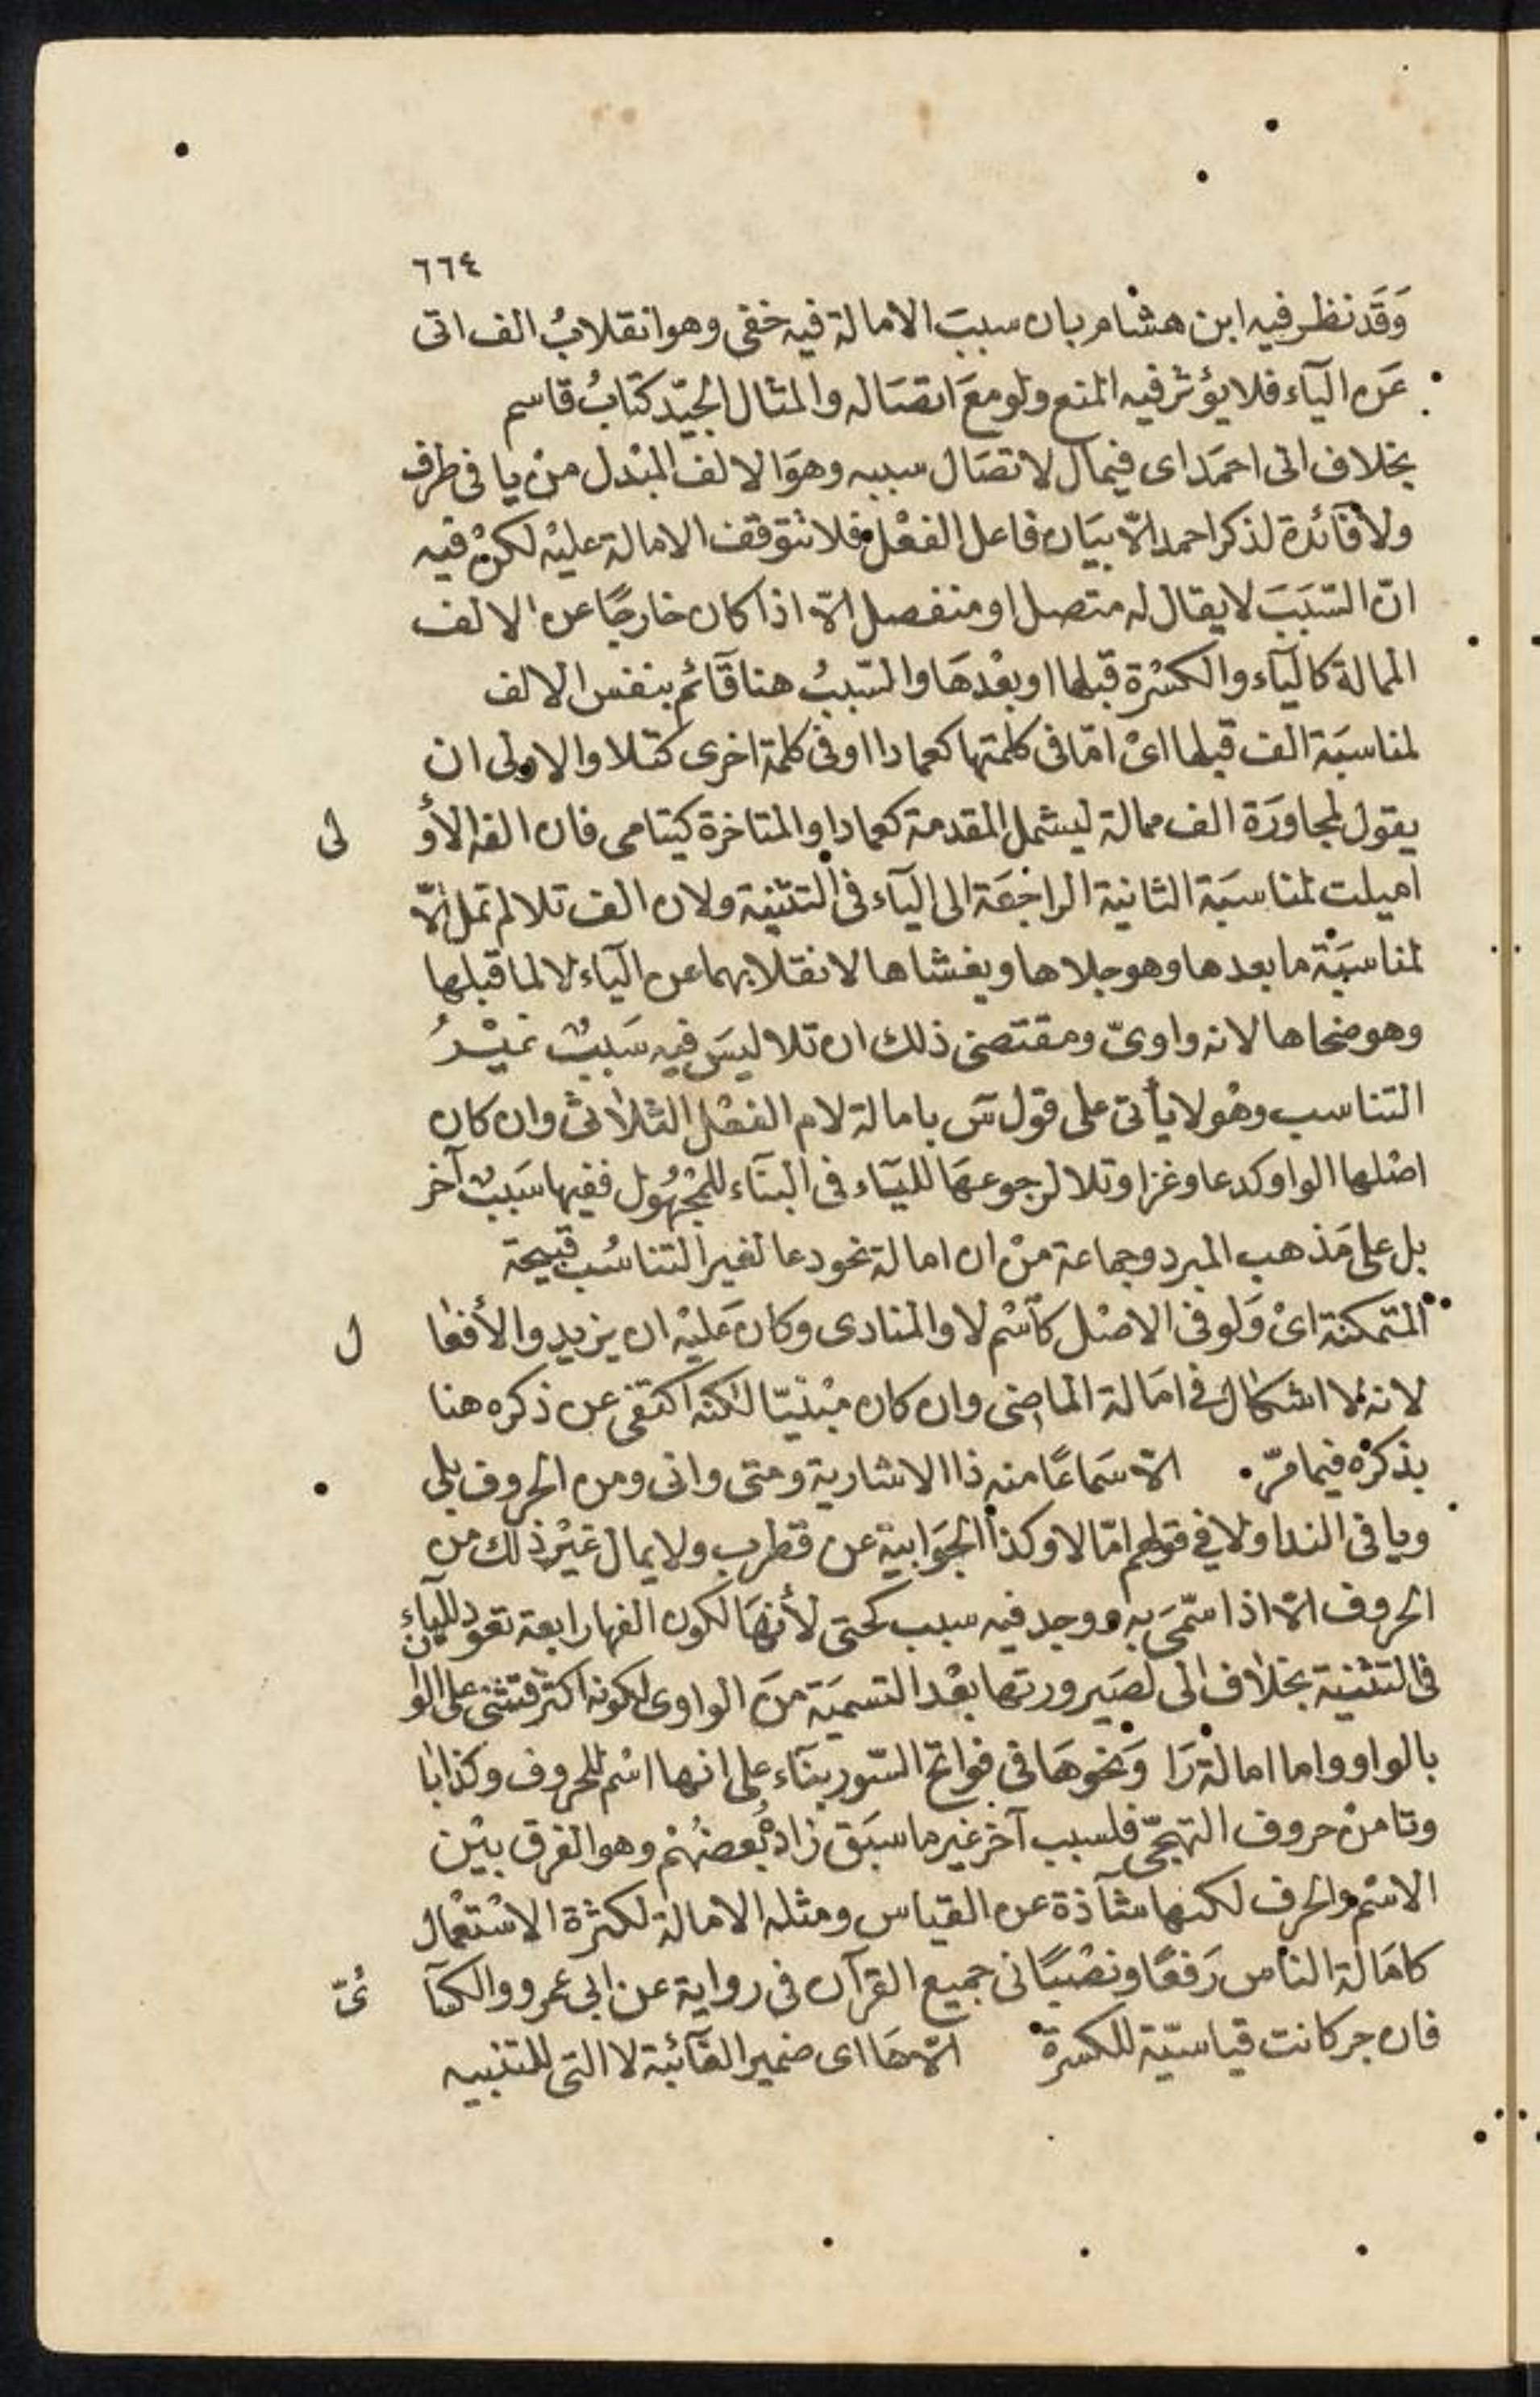 ٦٦٤
وَقَد نظر فيه ابن هشام بان سببَ الامالة فيه خفى وهو انقلابُ الف اتى
عَن اليآء فلا يؤثر فيه المنع ولو معَ اتصَاله والمثال الجيّد كتابُ قاسم
بخلاف اتى احمَد اى فيمال لاتصَال سببه وهوَ الالف المبْدل منْ يا فى طرف
ولا فآئدة لذكر احمد الّا بيَان فاعل الفعْل فلا تتوقف الامالة عليْه لكنْ فيه
انّ السّبَبَ لا يقال له متصل او منفصل الّا اذا كان خارجًا عن الالف
الممالة كاليآء والكسْرة قبلها او بعْدهَا والسّببُ هنا قآئم بنفس الالف
لمناسبَة الف قبلها اىْ امّا فى كلمتها كعمادا او فى كلمة اخرى كتلا والاولى ان
يقول لمجاورَة الف ممالة ليشمل المقدمة كعمادا والمتاخرة كيتامى فان الفه الأولى
اميلت لمناسبَة الثانية الراجعَة الى اليآء فى التثنية ولان الف تلا لم تمل الّا
لمناسبَة ما بعدها وهو جلاها ويغشاها لانقلابهما عن اليآء لا لما قبلها
وهو ضحاها لانه واوىّ ومقتضى ذلك ان تلا ليسَ فيه سَببٌ غيْرُ
التناسب وهْو لا يأتى على قول سَ بامالة لام الفعْل الثلاثى وان كان
اصْلها الواو كدعا وغزا وتلا لرجوعهَا لليَاء فى البنَاء للمجْهُول ففيها سَببٌ آخر
بل على مَذهب المبرد وجماعة منْ ان امالة نحو دعا لغير التناسُب قبيحة
المتمكنة اىْ وَلو فى الاصْل كاسْم لا والمنادى وكان عَليْه ان يزيد والأفعال
لانه لا اشكال فى امَالة الماضى وان كان مبْنيّا لكنّه اكتفى عن ذكره هنا
بذكرْه فيما مرّ . الّا سَماعًا منه ذا الاشارية ومتى وانى ومن الحروف بلى
ويا فى الندا ولا فى قولهم امّا لا وكذا الجوَابية عن قطرب ولا يمال غيْر ذلك من
الحروف الّا اذا سمّىَ به ووجد فيه سبب كحتى لأنهَا لكون الفها رابعة تعود للياء
فى التثنية بخلاف الى لصَيرورتها بعْد التسميَة منَ الواوى لكونه اكثر فتثنى على الوان
بالواو واما امالة رَا وَنحوهَا فى فواتح السّور بنَاء على انها اسْم للحروف وكذا با
وتا منْ حروف التهجّى فلسبب آخر غير ما سبَق زادهُ بعضهُمْ وهو الفرق بيْن
الاسْم والحرف لكنها شآذة عن القياس ومثله الامالة لكثرة الاسْتعْمال
كامَالة الناس رَفعًا ونصْبًا فى جميع القرآن فى رواية عن ابى عمرو والكسآئىّ
فان جر كانت قياسيّة للكسرة الّا هَا اى ضمير الغآئبة لا التى للتنبيه